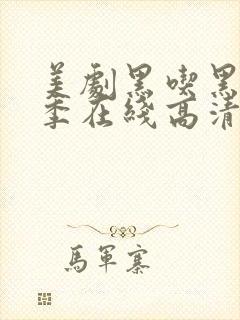 美劇黑喫黑
季在綫高清
馬軍寨